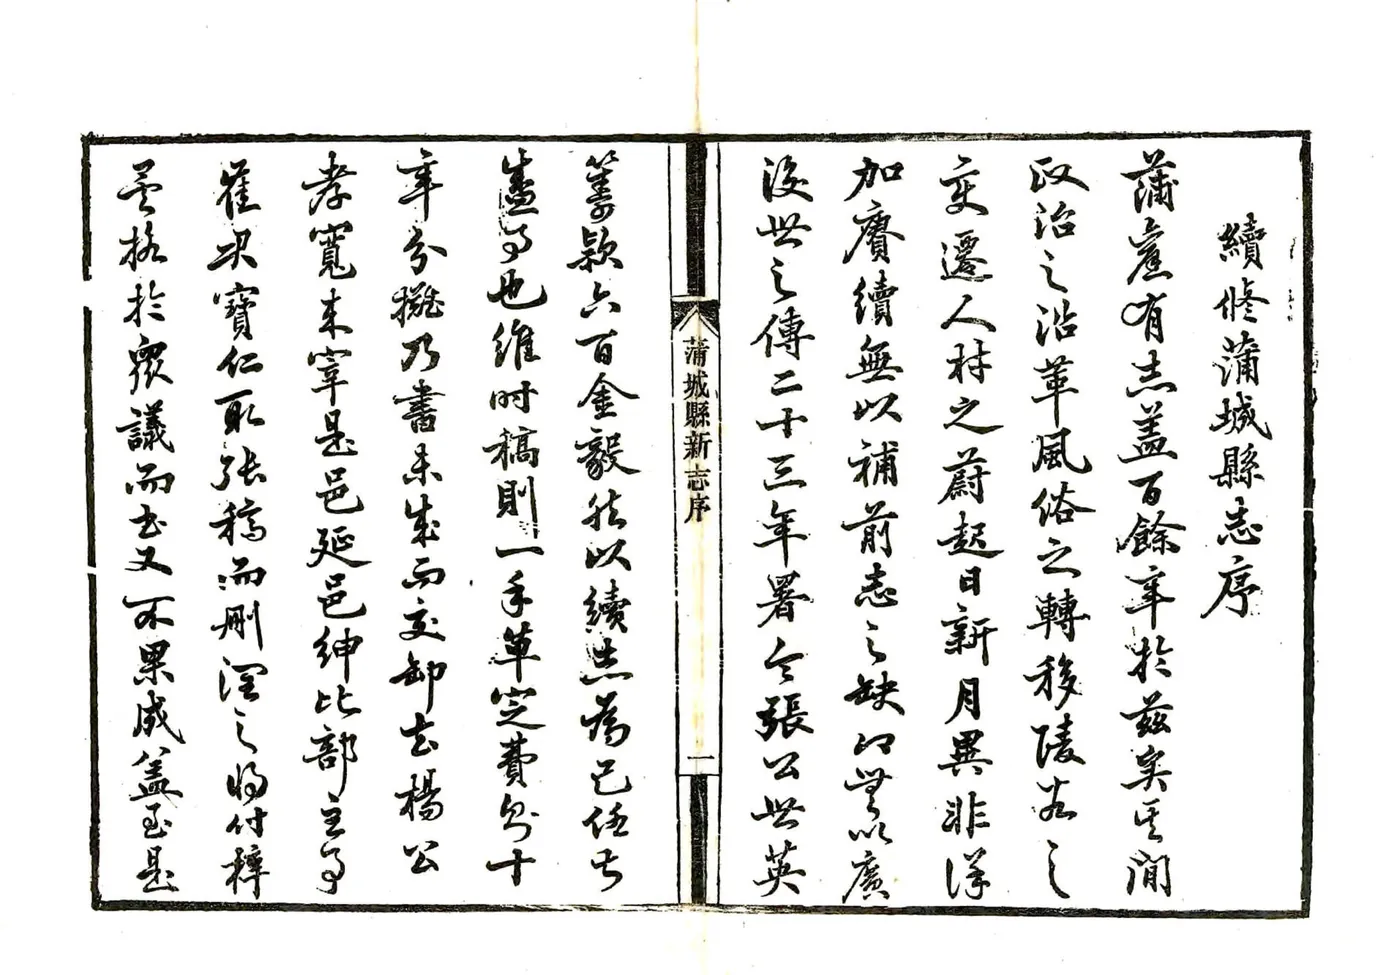 續修蒲城縣志序
蒲舊有志蓋百餘年於茲矣其間
政治之沿革風俗之轉移陵谷之
變遷人材之蔚起日新月異非詳
加賡續無以補前志之缺即無以廣
後世之傳二十三年署令張公世英
蒲城縣新志序
一
籌款六百金毅然以續志為己任甚
盛事也維時稿則一手草定費十
年分攤乃書未成而交卸去楊公
孝寬來宰是邑延邑紳比部主事
崔次寶仁取張稿而刪潤之將付梓
格於眾議而書又不果成蓋至是